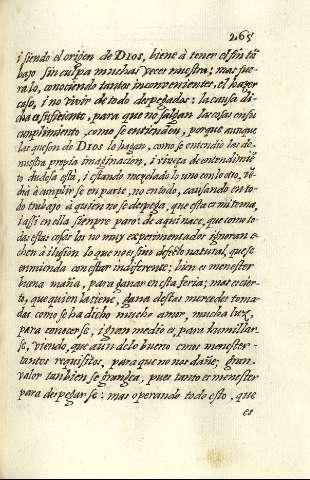 265
i siendo el origen de DIOS, biene à tener el fin tā
bajo sin culpa muchas veces nuestra; mas fue-
ra lo, conociendo tantos inconvenientes, el hazer
caso, i no vivir de todo despegados: la causa di-
cha es suficiente, para que no salgan las cosas en su
cumplimiento, como se entiendōn, porque aunque
las que son de DIOS lo hagan, como se entendio las de
nuestra propia imaginacion, i viveça de entendimiē
to dudosa està, i estando mezclado lo uno con lo otro, vē-
drà à cumplir se en parte, no en todo, causando en to-
do trabajo à quien no se despega, que esta es mi tema,
i assi en ella siempre paro: de aqui nace, que como to-
das estas cosas los no muy experimentados ignoran e-
chen à ilusion lo que no es sino defecto natural, que se
enmienda con estar indiferente; bien es menester
buena maña, para ganar en esta feria; mas es cier-
to, que quien la tiene, gana destas mercedes toma-
das como se ha dicho mucho amor, mucha luz,
para conocerse, i gran medio es, para humillar-
se, viendo, que aun de lo bueno emos menester
tantos requisitos, para que no nos dañe; gran
valor tanbien se grangea, pues tanto es menester
para despegar se: mas operando todo esto, que
es